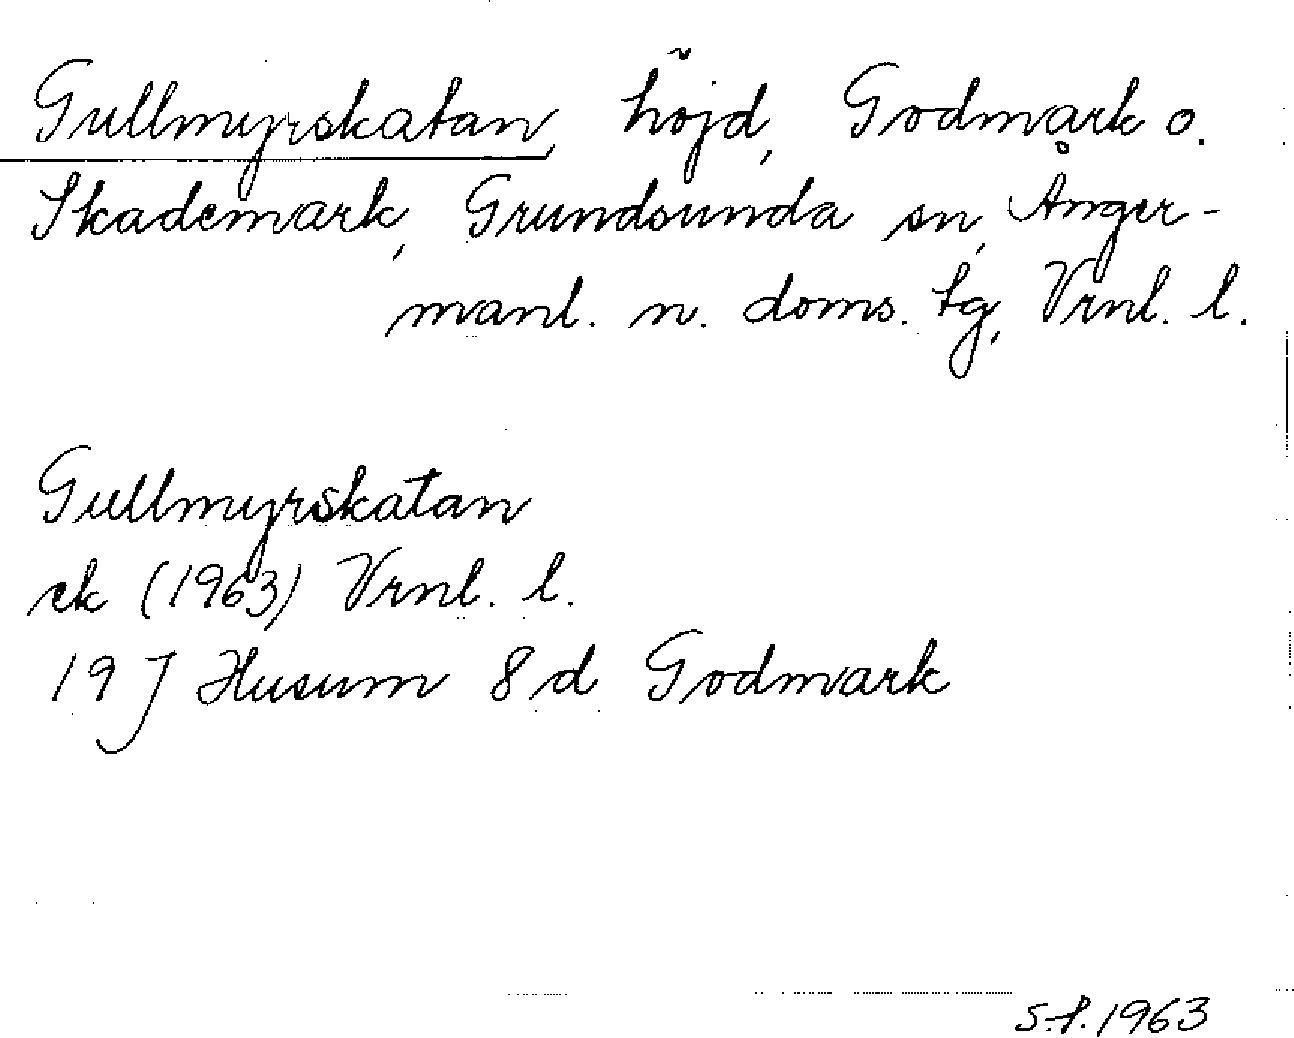 Gullmyrskatan, höjd, Godmark o.
Skademark, Grundsunda sn, Ånger-
manl. n. doms. tg, Vrnl. l.
Gullmyrskatan
ek (1963) Vrnl. l.
19 J Husum 8 d Godmark
S.P. 1963